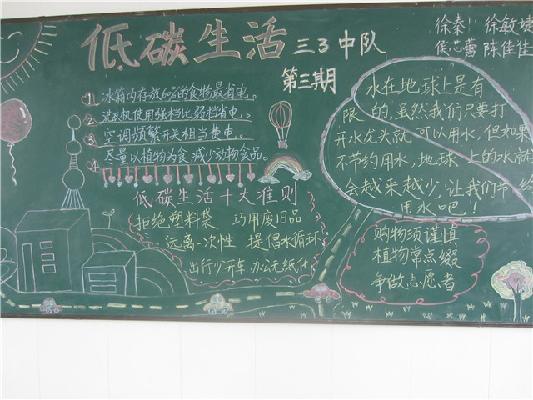 低碳生活 三3中队
第三期
徐秦 徐敏捷
侯心蕾 陈佳佳
1 冰箱内存放的食物最省电。
2 洗衣机使用强档比弱档省电。
3 空调频繁开关相当费电。
4 尽量以植物为食,减少动物食品。
低碳生活十大准则
拒绝塑料袋 巧用废旧品
远离一次性 提倡水循环
出行少开车 办公无纸化
水在地球上是有
限的,虽然我们只要打
开水龙头就可以用水,但如果
不节约用水,地球上的水就
会越来越少,让我们节约
用水吧!
购物须谨慎
植物常点缀
争做志愿者